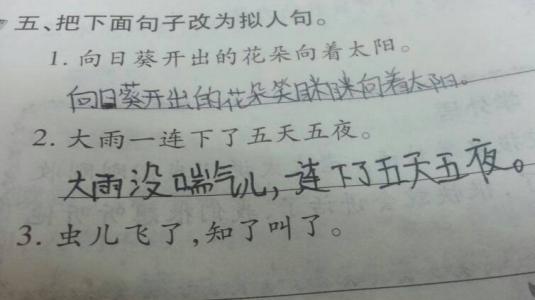 五、把下面句子改为拟人句。
1. 向日葵开出的花朵向着太阳。
向日葵开出的花朵笑眯眯向着太阳。
2. 大雨一连下了五天五夜。
大雨没喘气儿,连下了五天五夜。
3. 虫儿飞了,知了叫了。